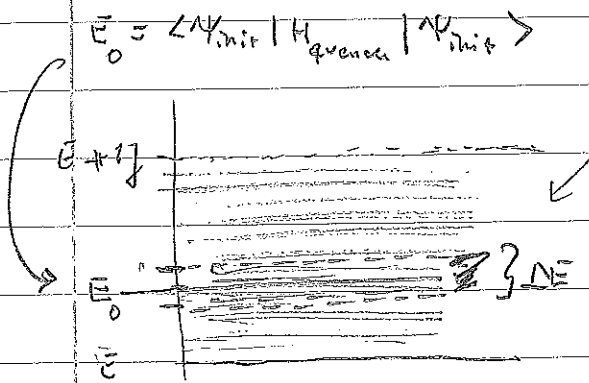 Ē₀ = <Ψinit | Hquench | Ψinit>
E + 1J
E₀ } ΔE
Ē